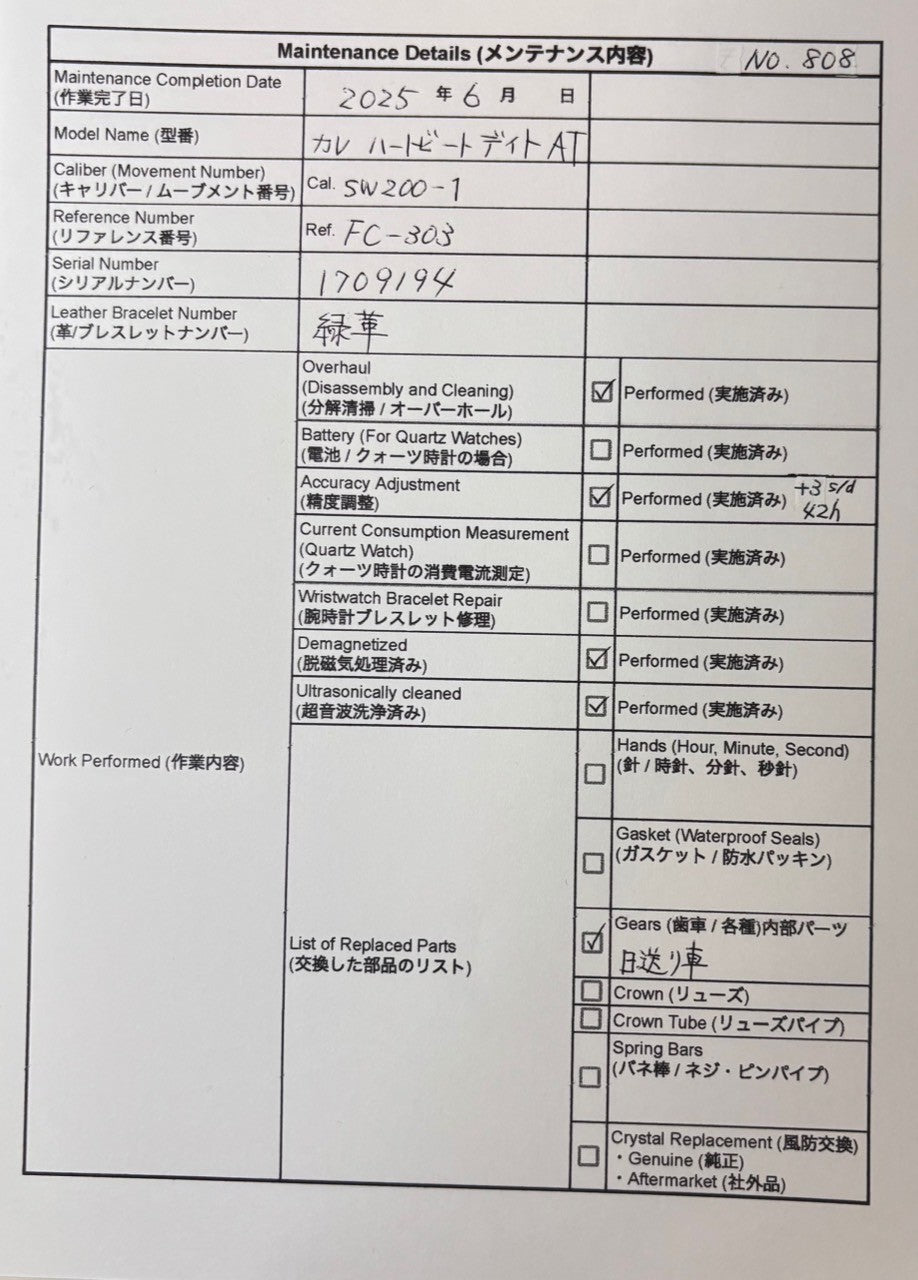 Maintenance Details (メンテナンス内容)
NO. 808
Maintenance Completion Date
(作業完了日)
2025 年 6 月 日
Model Name (型番)
カレ ハートビート デイト AT
Caliber (Movement Number)
(キャリバー / ムーブメント番号)
Cal. SW200-1
Reference Number
(リファレンス番号)
Ref. FC-303
Serial Number
(シリアルナンバー)
1709194
Leather Bracelet Number
(革/ブレスレットナンバー)
緑革
Work Performed (作業内容)
Overhaul
(Disassembly and Cleaning)
(分解清掃 / オーバーホール)
☑ Performed (実施済み)
Battery (For Quartz Watches)
(電池 / クォーツ時計の場合)
☐ Performed (実施済み)
Accuracy Adjustment
(精度調整)
☑ Performed (実施済み) +3 s/d
42h
Current Consumption Measurement
(Quartz Watch)
(クォーツ時計の消費電流測定)
☐ Performed (実施済み)
Wristwatch Bracelet Repair
(腕時計ブレスレット修理)
☐ Performed (実施済み)
Demagnetized
(脱磁気処理済み)
☑ Performed (実施済み)
Ultrasonically cleaned
(超音波洗浄済み)
☑ Performed (実施済み)
List of Replaced Parts
(交換した部品のリスト)
☐ Hands (Hour, Minute, Second)
(針 / 時針、分針、秒針)
☐ Gasket (Waterproof Seals)
(ガスケット / 防水パッキン)
☑ Gears (歯車 / 各種)内部パーツ
日送り車
☐ Crown (リューズ)
☐ Crown Tube (リューズパイプ)
☐ Spring Bars
(バネ棒 / ネジ・ピンパイプ)
☐ Crystal Replacement (風防交換)
・Genuine (純正)
・Aftermarket (社外品)